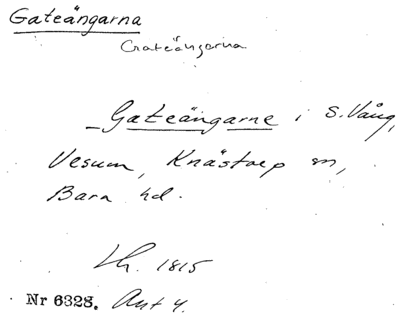 Gateängarna
Crateängarna
Gateängarne i S. Vång,
Vesum, Knästorp sn,
Bara hd.
Lh. 1815
Nr 6328. Akt 4.